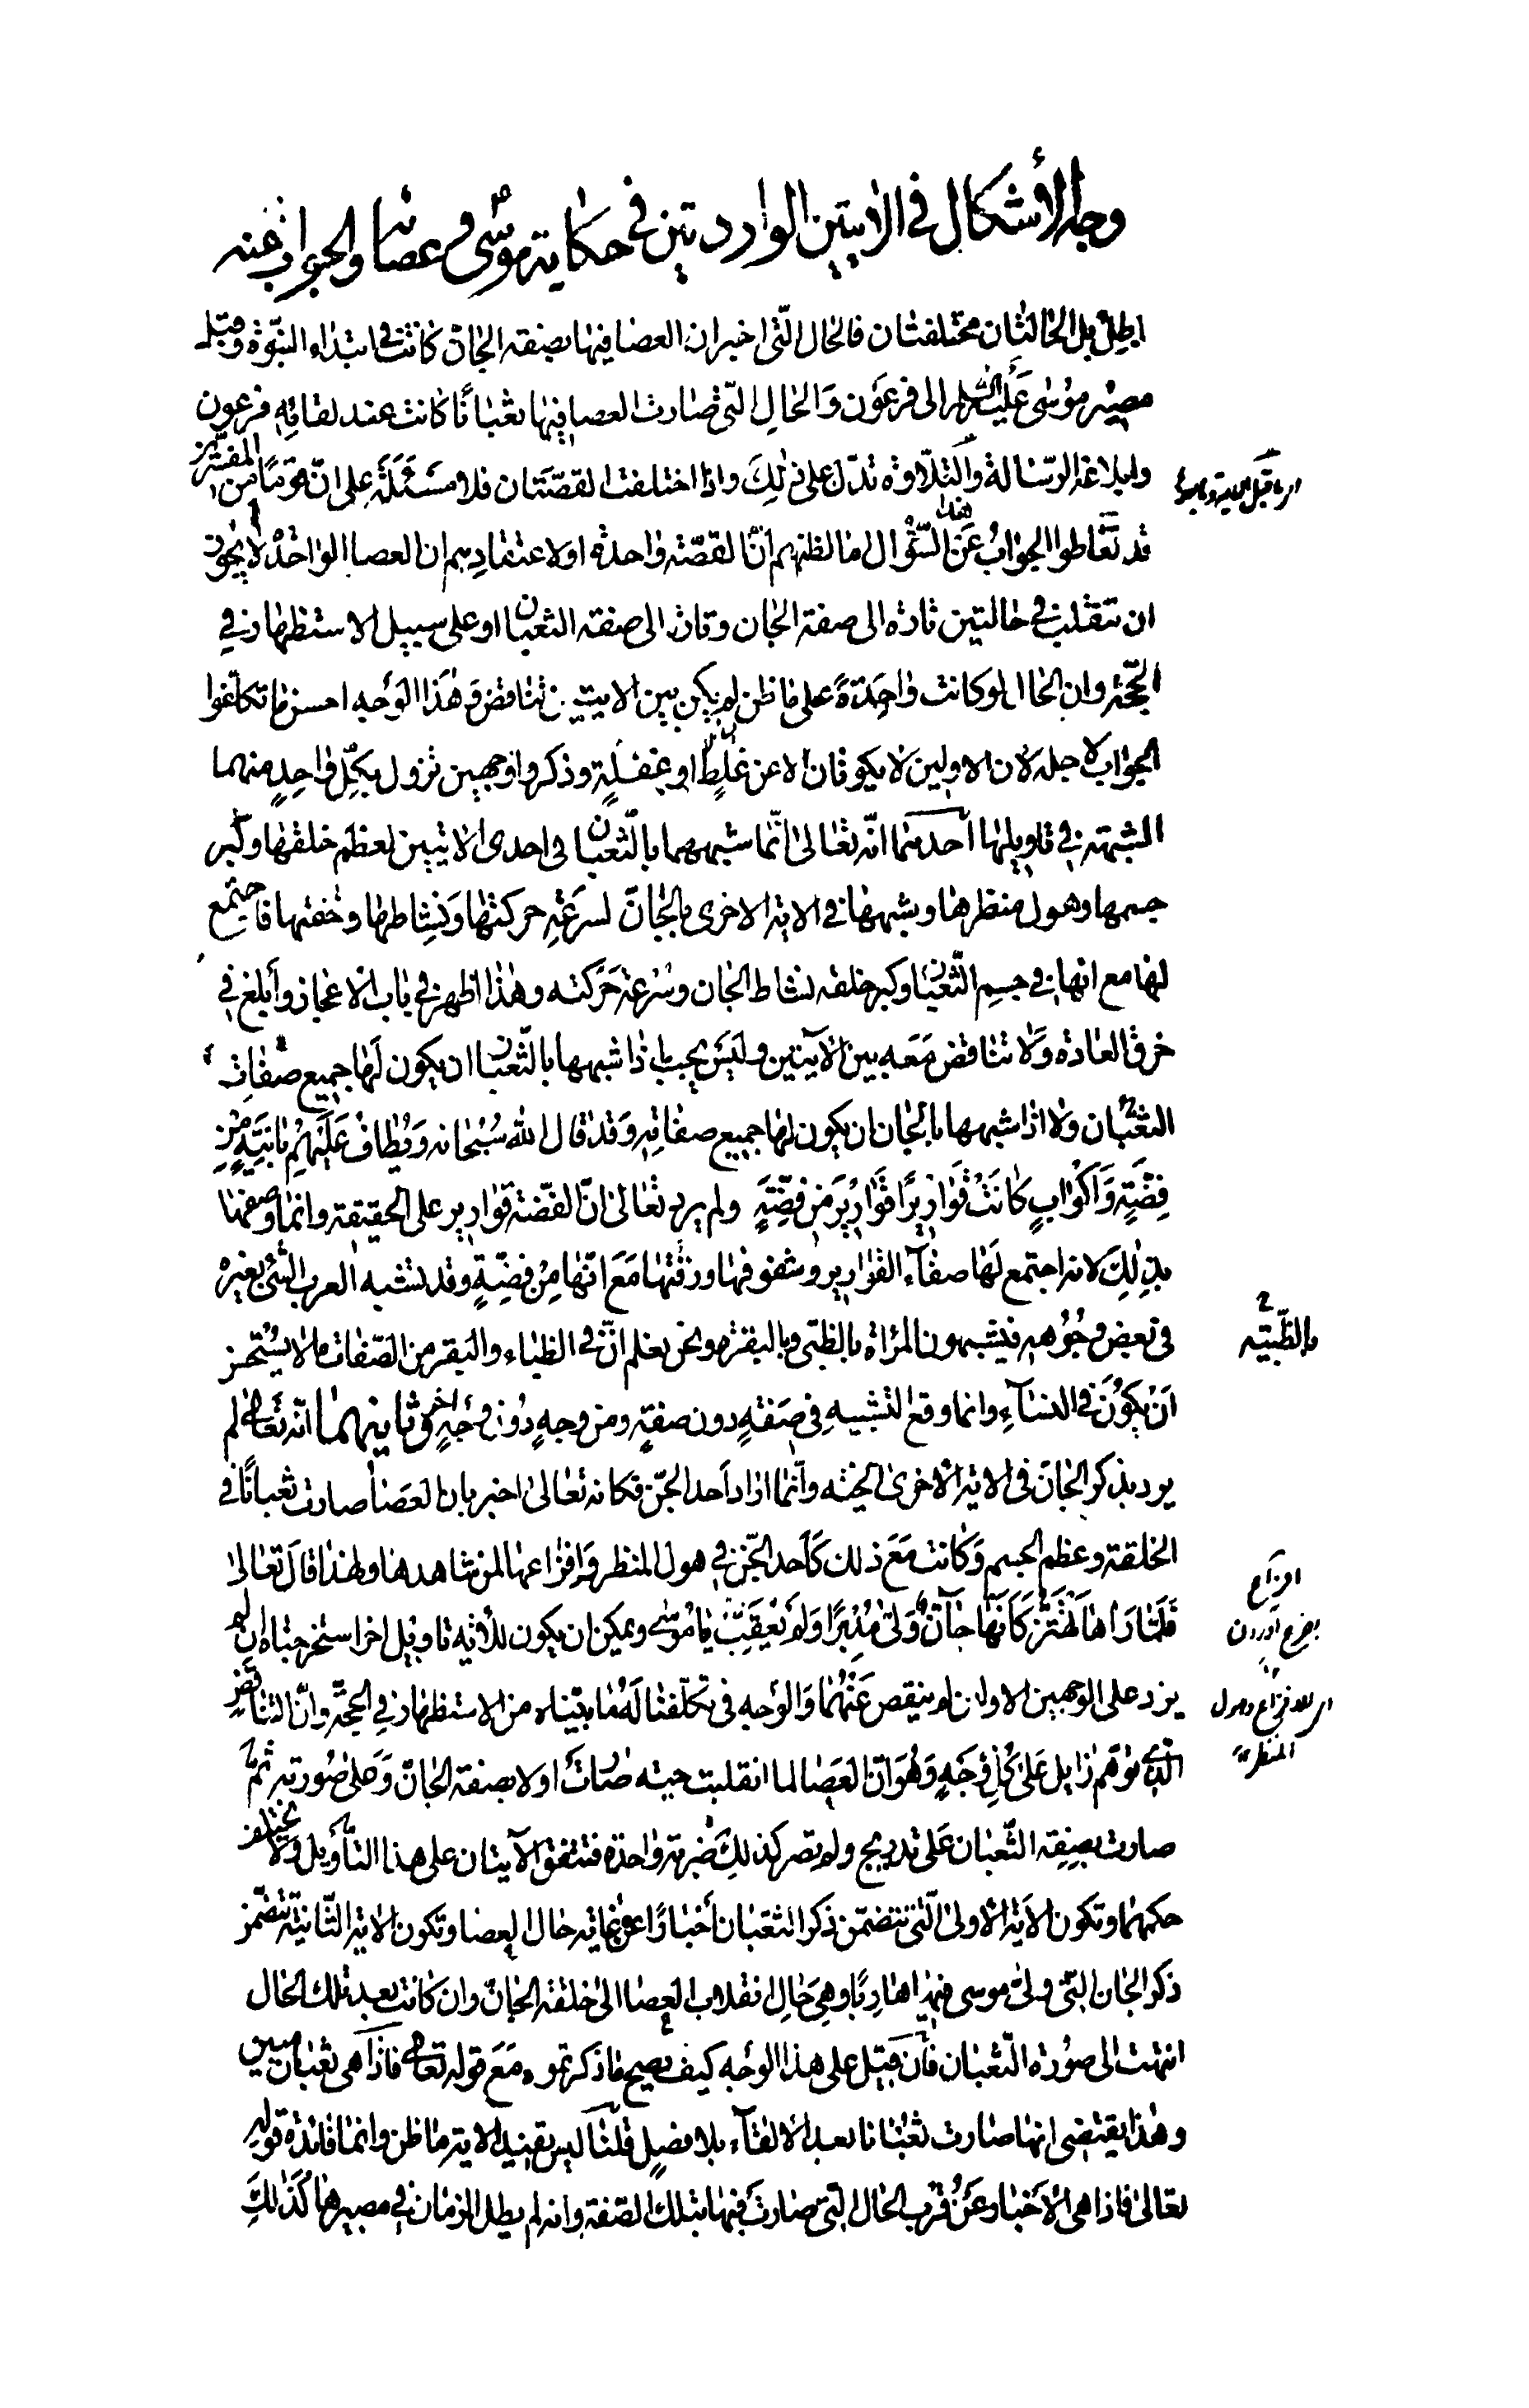 وجه الأشكال في الايتين الواردتين في حكاية موسى وعصاه والجواب عنه
ابطل بل الحالتان مختلفتان فالحال التي اخبر ان العصا فيها بصفة الجان كانت في ابتداء النبوة وقبل
مصير موسى عليه السلام الى فرعون والحال التي صارت العصا فيها ثعبانًا كانت عند لقائه فرعون
وابلاغه الرسالة والتلاوة تدل على ذلك واذا اختلفت القصتان فلا مسئلة على ان قومًا من المفسرين
قد تعاطوا الجواب عن هذا السؤال اما لظنهم ان القصة واحدة او لاعتقادهم ان العصا الواحدة لا يجوز
ان تنقلب في حالتين تارة الى صفة الجان وتارة الى صفة الثعبان او على سبيل الاستظهار في
الحجة وان الحال لو كانت واحدة على ما ظن لم يكن بين الايتين تناقض وهذا الوجه احسن ما تكلفوا
الجواب لاجله لان الاولين لا يكونان الا عن غلط او غفلة وذكروا وجهين تزول بكل واحد منهما
الشبهة في تاويلها احدهما انه تعالى انما شبهها بالثعبان في احدى الايتين لعظم خلقها وكبر
جسمها وهول منظرها وشبهها في الاية الاخرى بالجان لسرعة حركتها ونشاطها وخفتها فاجتمع
لها مع انها في جسم الثعبان وكبر خلقه نشاط الجان وسرعة حركته وهذا اظهر في باب الاعجاز وابلغ في
خرق العادة ولا تناقض معه بين الآيتين وليس يجب اذا شبهها بالثعبان ان يكون لها جميع صفات
الثعبان ولا اذا شبهها بالجان ان يكون لها جميع صفاته وقد قال الله سبحانه ويطاف عليهم بانية من
فضة واكواب كانت قواريرًا قوارير من فضة ولم يرد تعالى ان الفضة قوارير على الحقيقة وانما وصفها
بذلك لانه اجتمع لها صفاء القوارير وشفوفها ورقتها مع انها من فضة وقد تشبه العرب الشئ بغيره
في بعض وجوهه فيشبهون المراة بالظبي وبالبقرة ونحن نعلم ان في الظباء والبقر من الصفات ما لا يستحسن
ان يكون في النساء وانما وقع التشبيه في صفة دون صفة ومن وجه دون وجه اخر وثانيهما انه تعالى لم
يرد بذكر الجان في الاية الاخرى الحية وانما اراد احد الجن فكانه تعالى اخبر بان العصا صارت ثعبانًا في
الخلقة وعظم الجسم وكانت مع ذلك كاحد الجن في هول المنظر وافزاعها لمن شاهدها ولهذا قال تعالى
فلما راها تهتز كانها جان ولى مدبرًا ولم يعقب يا موسى ويمكن ان يكون للاية تاويل اخر استخرجناه ان لم
يزد على الوجهين الاولين لم ينقص عنهما والوجه في تكلفنا له ما بيناه من الاستظهار في الحجة وان التناقض
الذي توهم زايل على كل وجه وهو ان العصا لما انقلبت حية صارت اولا بصفة الجان وعلى صورته ثم
صارت بصفة الثعبان على تدريج ولم تصر كذلك ضربة واحدة فتتفق الآيتان على هذا التأويل ولا يختلف
حكمهما وتكون الاية الاولى التي تتضمن ذكر الثعبان اخبارًا عن غاية حال العصا وتكون الاية الثانية تتضمن
ذكر الجان التي ولى موسى منها هاربًا وهي حال انقلاب العصا الى خلقة الجان وان كانت بعد تلك الحال
انتهت الى صورة الثعبان فان قيل على هذا الوجه كيف يصح ما ذكرتموه مع قوله تعالى فاذا هي ثعبان مبين
وهذا يقتضي انها صارت ثعبانا بعد الالقاء بلا فصل قلنا ليس يفيد الاية ما ظن وانما فائدة قوله
تعالى فاذا هي الاخبار عن قرب الحال التي صارت فيها بتلك الصفة وانه لم يطل الزمان في مصيرها كذلك
بالظبية
افزاع
بفزع آوردن
المنظر